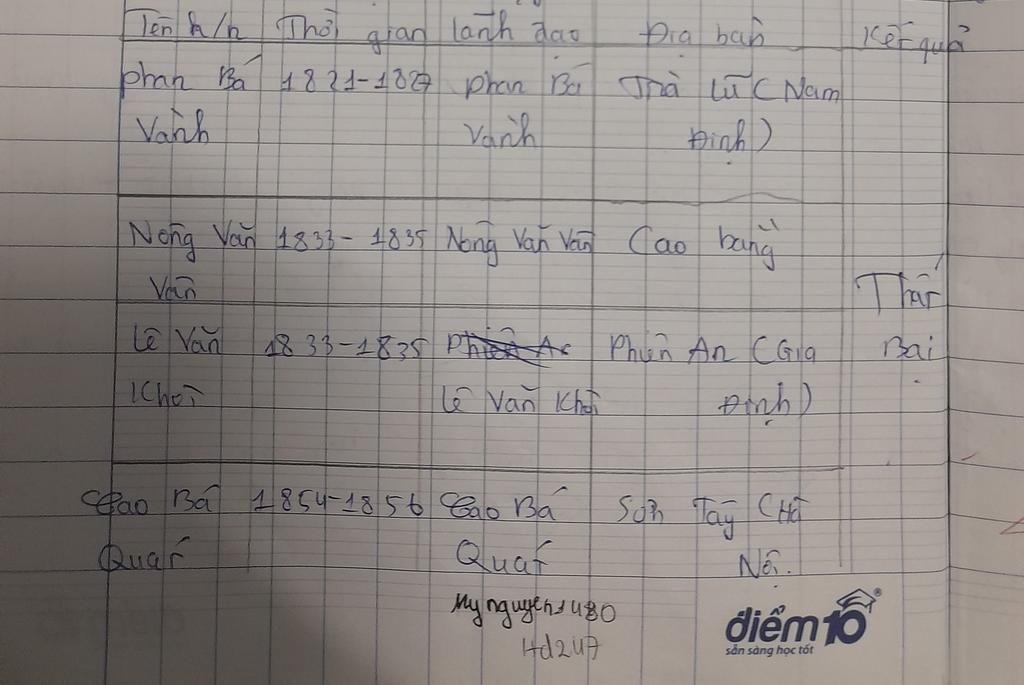 Tên k/n Thời gian lãnh đạo Địa bàn Kết quả
Phan Bá 1821-1827 Phan Bá Trà Lũ (Nam
Vành Vành Định)
Nông Văn 1833-1835 Nông Văn Vân Cao bằng
Vân Thất
Lê Văn 1833-1835 Phiên An (Gia Bại
Khôi Lê Văn Khôi Định)
Cao Bá 1854-1856 Cao Bá Sơn Tây (Hà
Quát Quát Nội.
Mynguyen1480
Hd247
điểm10
sẵn sàng học tốt